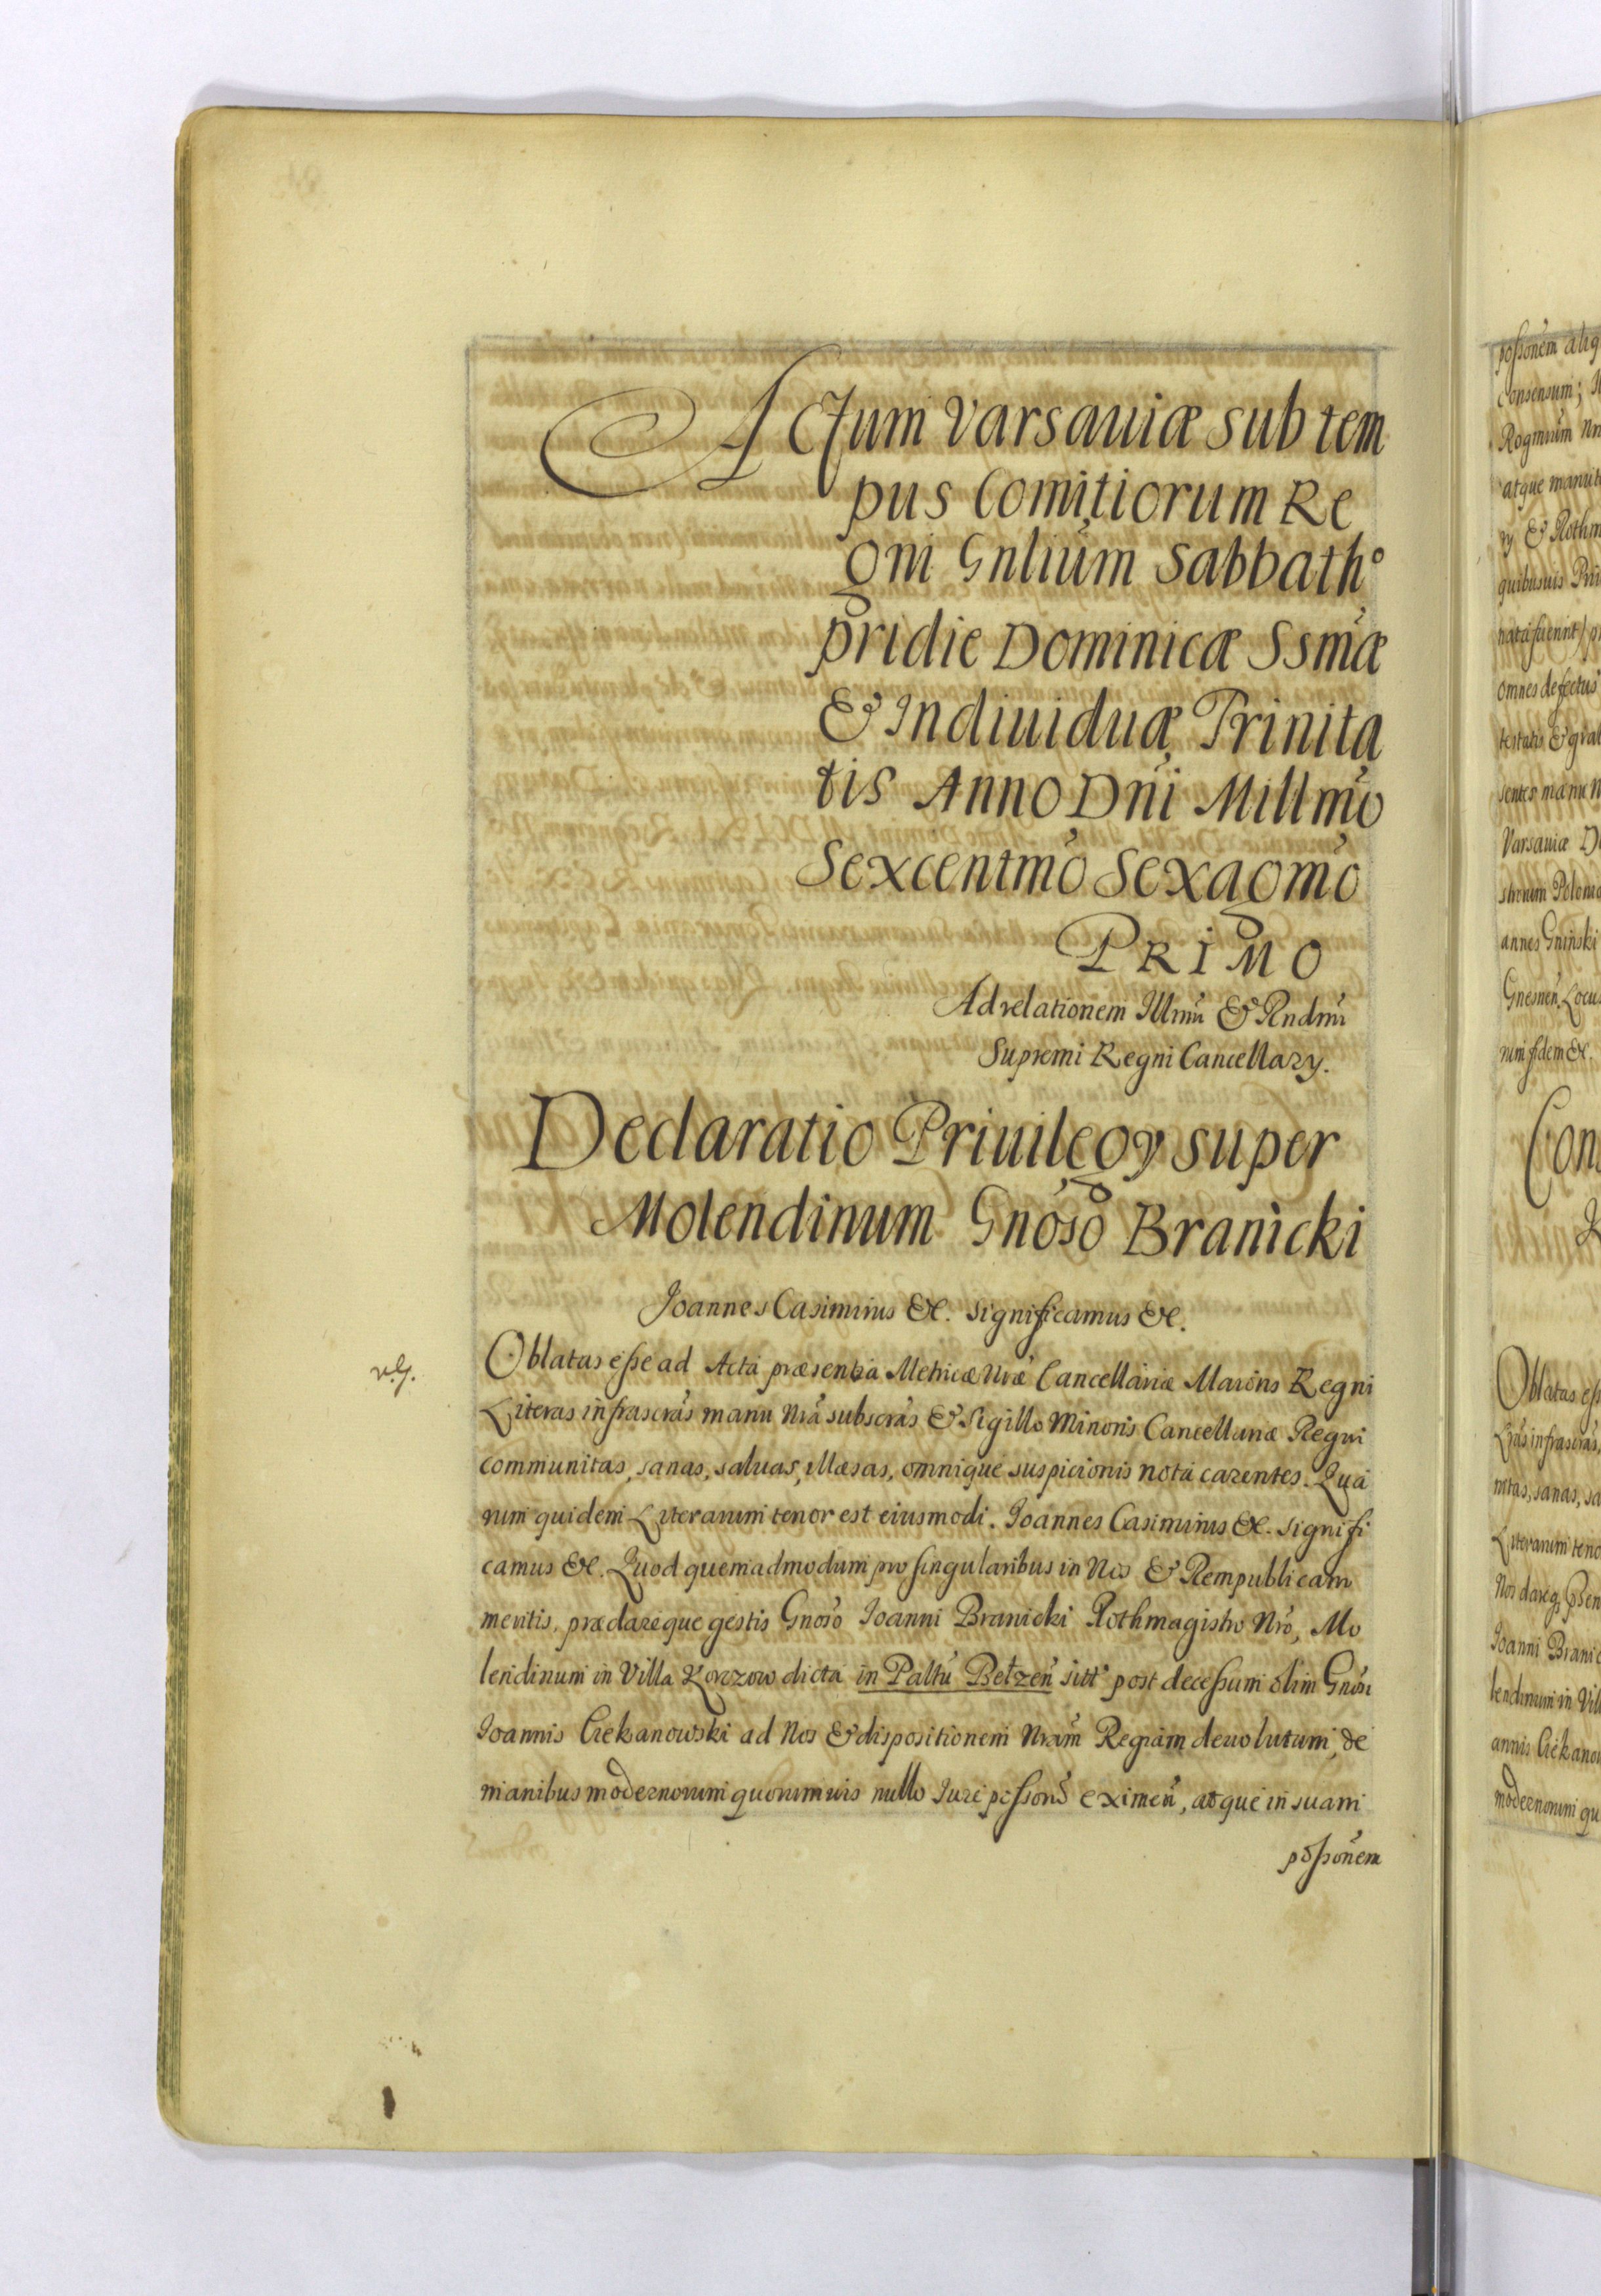 Actum Varsauiæ sub tem
pus Comitiorum Re
gni Gnlium Sabbath°
pridie Dominicæ Ssmæ
& Indiuiduæ Trinita
tis Anno Dni Millmo
Sexcentmo Sexagmo
PRIMO
Ad relationem Illmi & Rndmi
Supremi Regni Cancellary.
Declaratio Priuilegy super
Molendinum Gnoso Branicki
Joannes Casimirus &c. significamus &c.
Oblatas esse ad Acta præsentia Metricæ Nræ Cancellariæ Maioris Regni
Literas infrascras manu Nra subscras & Sigillo Minoris Cancellariæ Regni
communitas, sanas, saluas, illæsas, omnique suspicionis nota carentes. Qua
rum quidem Literarum tenor est eiusmodi. Joannes Casimirus &c. signifi
camus &c. Quod quemadmodum pro singularibus in Nos & Rempublicam
meritis, præclareque gestis Gnoso Joanni Branicki Rothmagistro Nro, Mo
lendinum in Villa Korczow dicta in Paltu Betzen sitt° post decessum olim Gnosi
Joannis Ciekanowski ad Nos & dispositionem Nram Regiam deuolutum, de
manibus modernorum quorumuis nullo Jure possond eximen, atque in suam
possonem
possonem aliq
consensum;
Rogmium
atque
ry & Rothm
quibusuis
omnes defectus
testatis & grat
sentes manu N
Varsauiæ
annes Gninski
Gnesnen. Locus
rum fidem &c.
Con
Oblatas ess
Lras infrascras,
nitas, sanas, sa
Literarum teno
Joanni Branic
lendinum in Vil
annis Ciekanow
modernorum qu